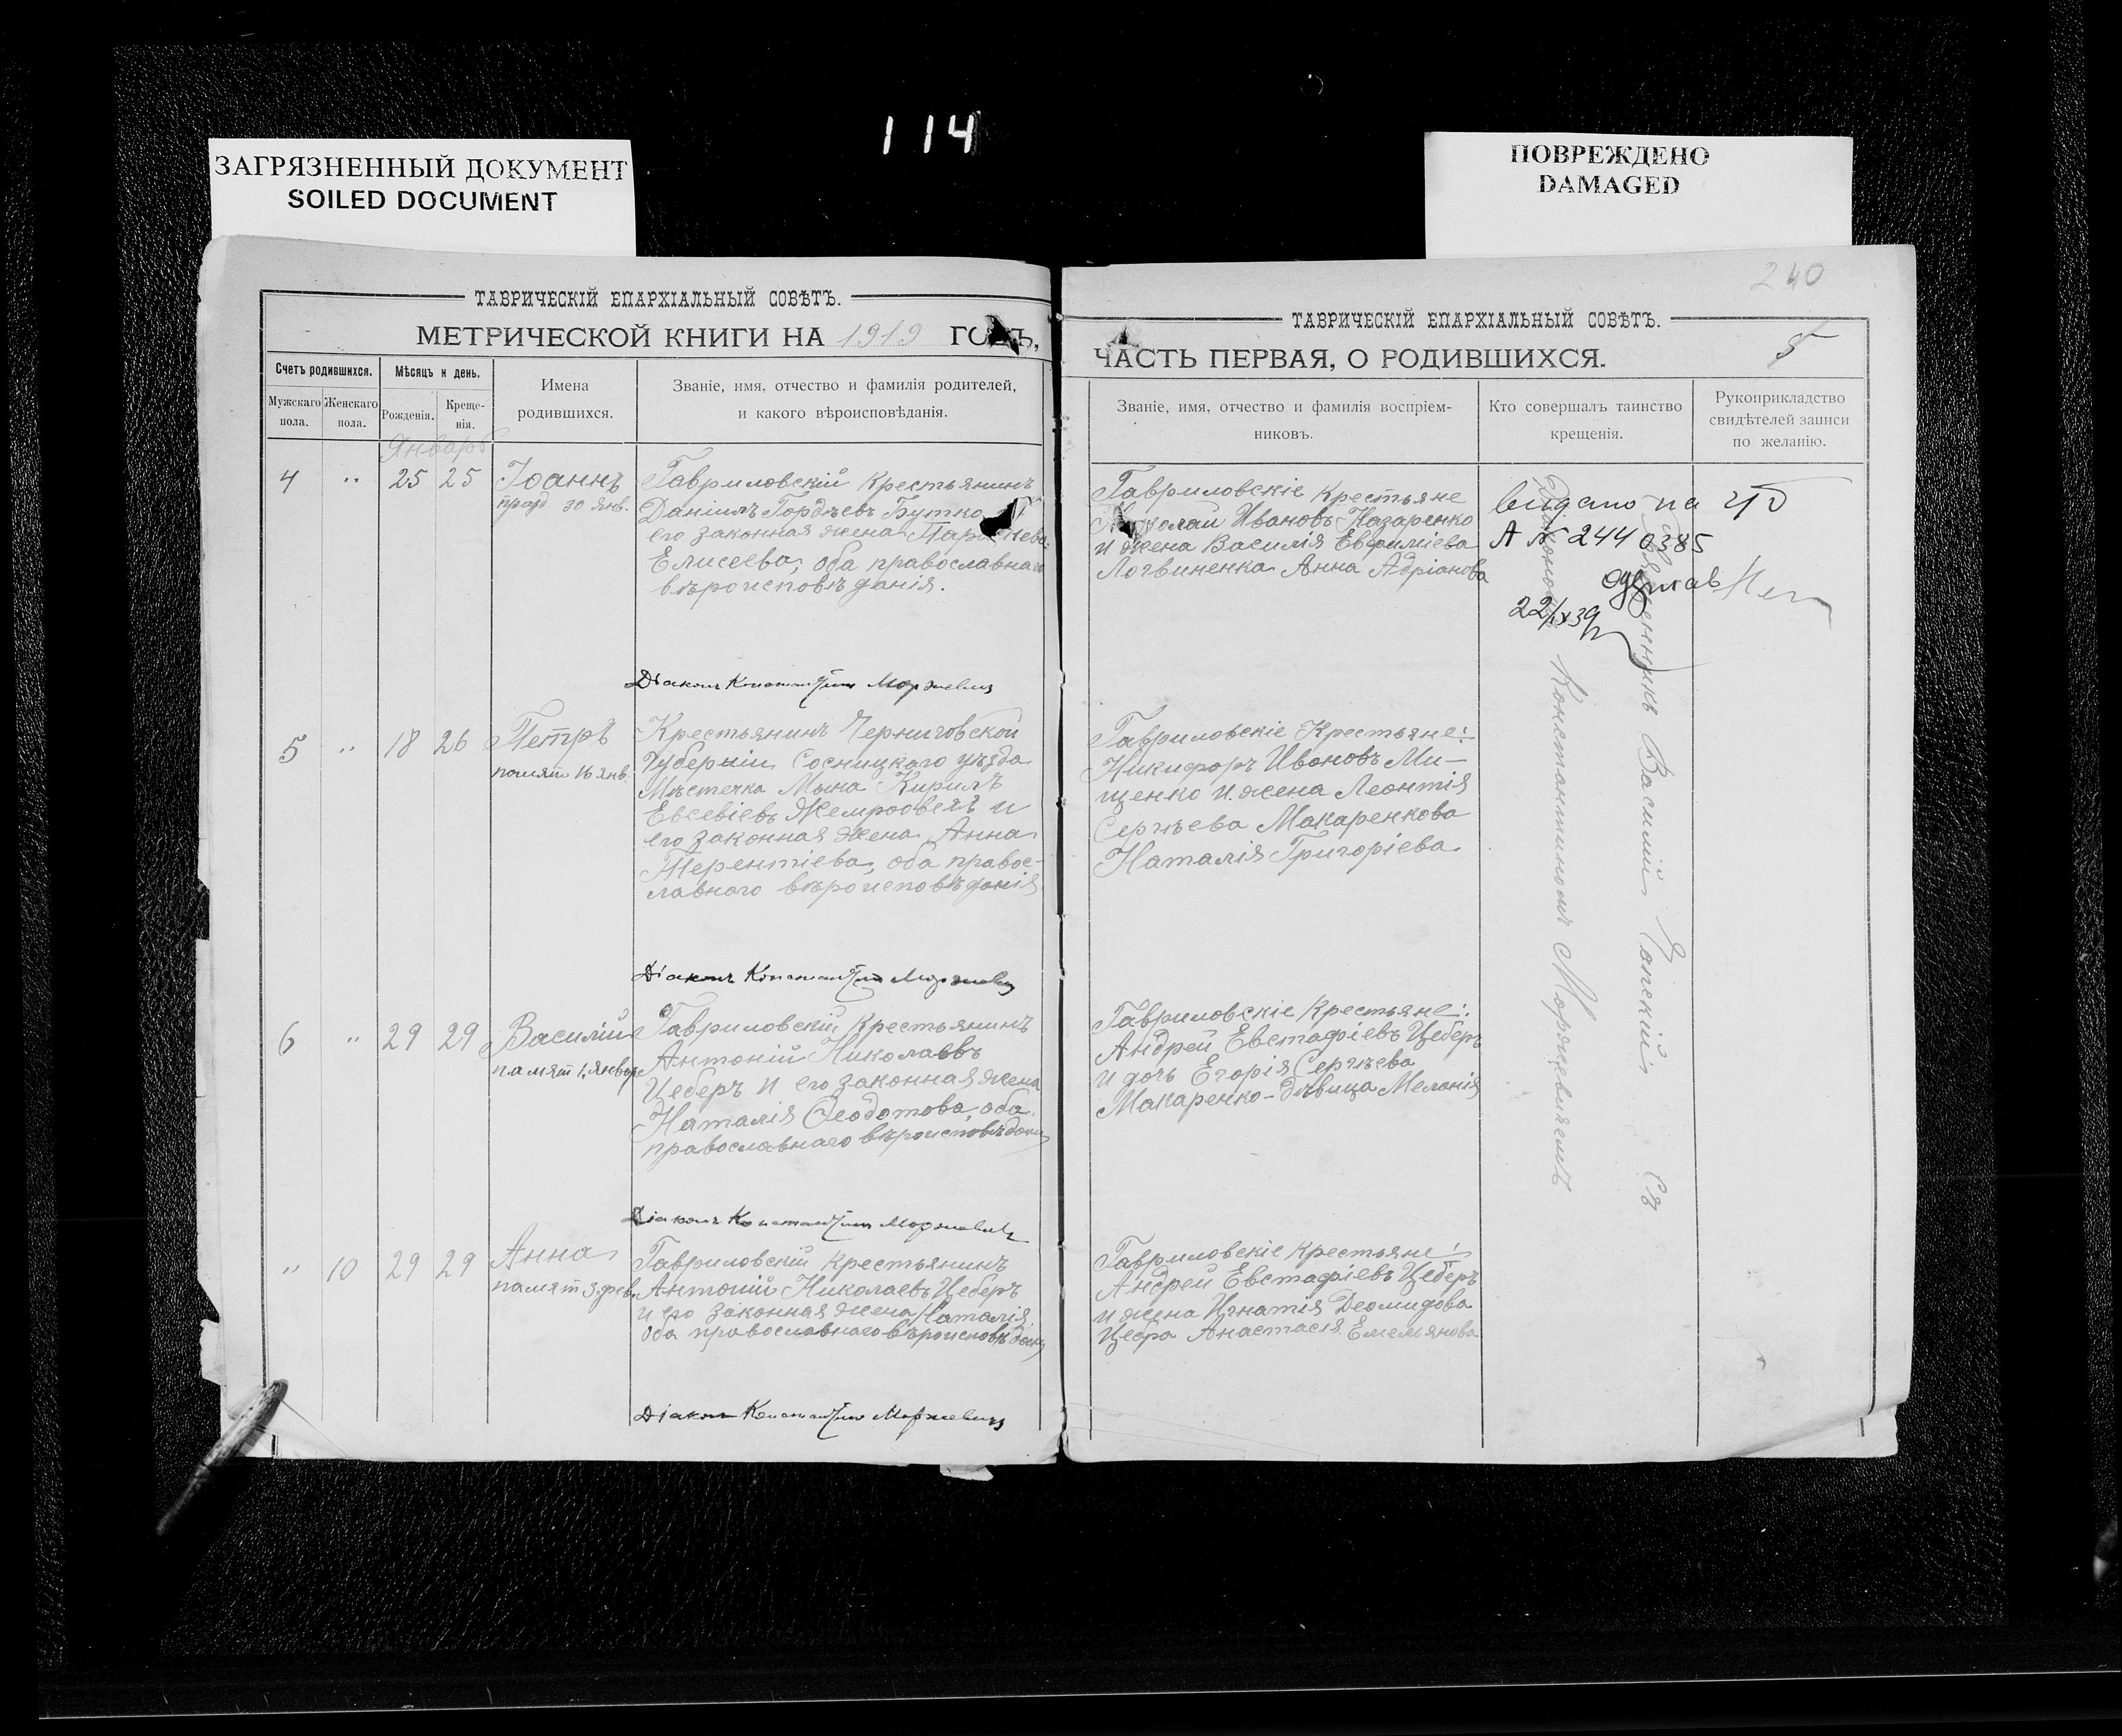 114
ЗАГРЯЗНЕННЫЙ ДОКУМЕНТ
SOILED DOCUMENT
ПОВРЕЖДЕНО
DAMAGED
ТАВРИЧЕСКІЙ ЕПАРХІАЛЬНЫЙ СОВѢТЪ.
МЕТРИЧЕСКОЙ КНИГИ НА 1919 ГОДЪ,
Счетъ родившихся.
Мужскаго пола.
Женскаго пола.
Мѣсяцъ и день.
Рожденія.
Креще-
нія.
Имена
родившихся.
Званіе, имя, отчество и фамилія родителей,
и какого вѣроисповѣданія.
Январь
4 " 25 25 Іоаннъ
празд 30 Янв.
Гавриловскій Крестьянинъ
Даніилъ Гордѣевъ Бутко
его законная жена Параскева
Елисеева, оба православнаго
вѣроисповѣданія.
Діаконъ Константинъ Моржевичъ
5 " 18 26 Петръ
памят 16 янв.
Крестьянинъ Черниговской
Губерніи Сосницкаго уѣзда
Мѣстечка Мына Кирилъ
Евсевіевъ и
его законная жена Анна
Терентіева, оба правос-
лавного вѣроисповѣданія
Діаконъ Константинъ Моржевичъ
6 " 29 29 Василій
памят 1 январ
Гавриловскій Крестьянинъ
Антоній Николаевъ
Цеберъ и его законная жена
Наталія Феодотова, оба
православнаго вѣроисповѣдан
Діаконъ Константинъ Моржевичъ
" 10 29 29 Анна
памят 3 фев.
Гавриловскій крестьянинъ
Антоній Николаевъ Цеберъ
и его законная жена Наталія
оба православнаго вѣроисповѣдан
Діаконъ Константинъ Моржевичъ
240
ТАВРИЧЕСКІЙ ЕПАРХІАЛЬНЫЙ СОВѢТЪ.
ЧАСТЬ ПЕРВАЯ, О РОДИВШИХСЯ.
5
Званіе, имя, отчество и фамилія воспріем-
никовъ.
Кто совершалъ таинство
крещенія.
Рукоприкладство
свидѣтелей записи
по желанію.
Гавриловскіе Крестьяне
Николай Ивановъ Назаренко
и жена Василія Евфиміева
Логвиненка Анна Адріанова
видано на
А № 2440385
22/IX 39
Гавриловскіе Крестьяне:
Никифоръ Ивановъ Ми-
щенко и жена Леонтія
Сергѣева Макаренкова
Наталія Григоріева
Гавриловскіе Крестьяне:
Андрей Евстафіевъ Цеберъ
и дочь Егорія Сергѣева
Макаренко-дѣвица Меланія
Гавриловскіе крестьяне:
Андрей Евстафіевъ Цеберъ
и жена Игнатія Деомидова
Цебра Анастасія Емельянова
Священникъ Василій съ
Діакономъ Константиномъ Моржевичемъ